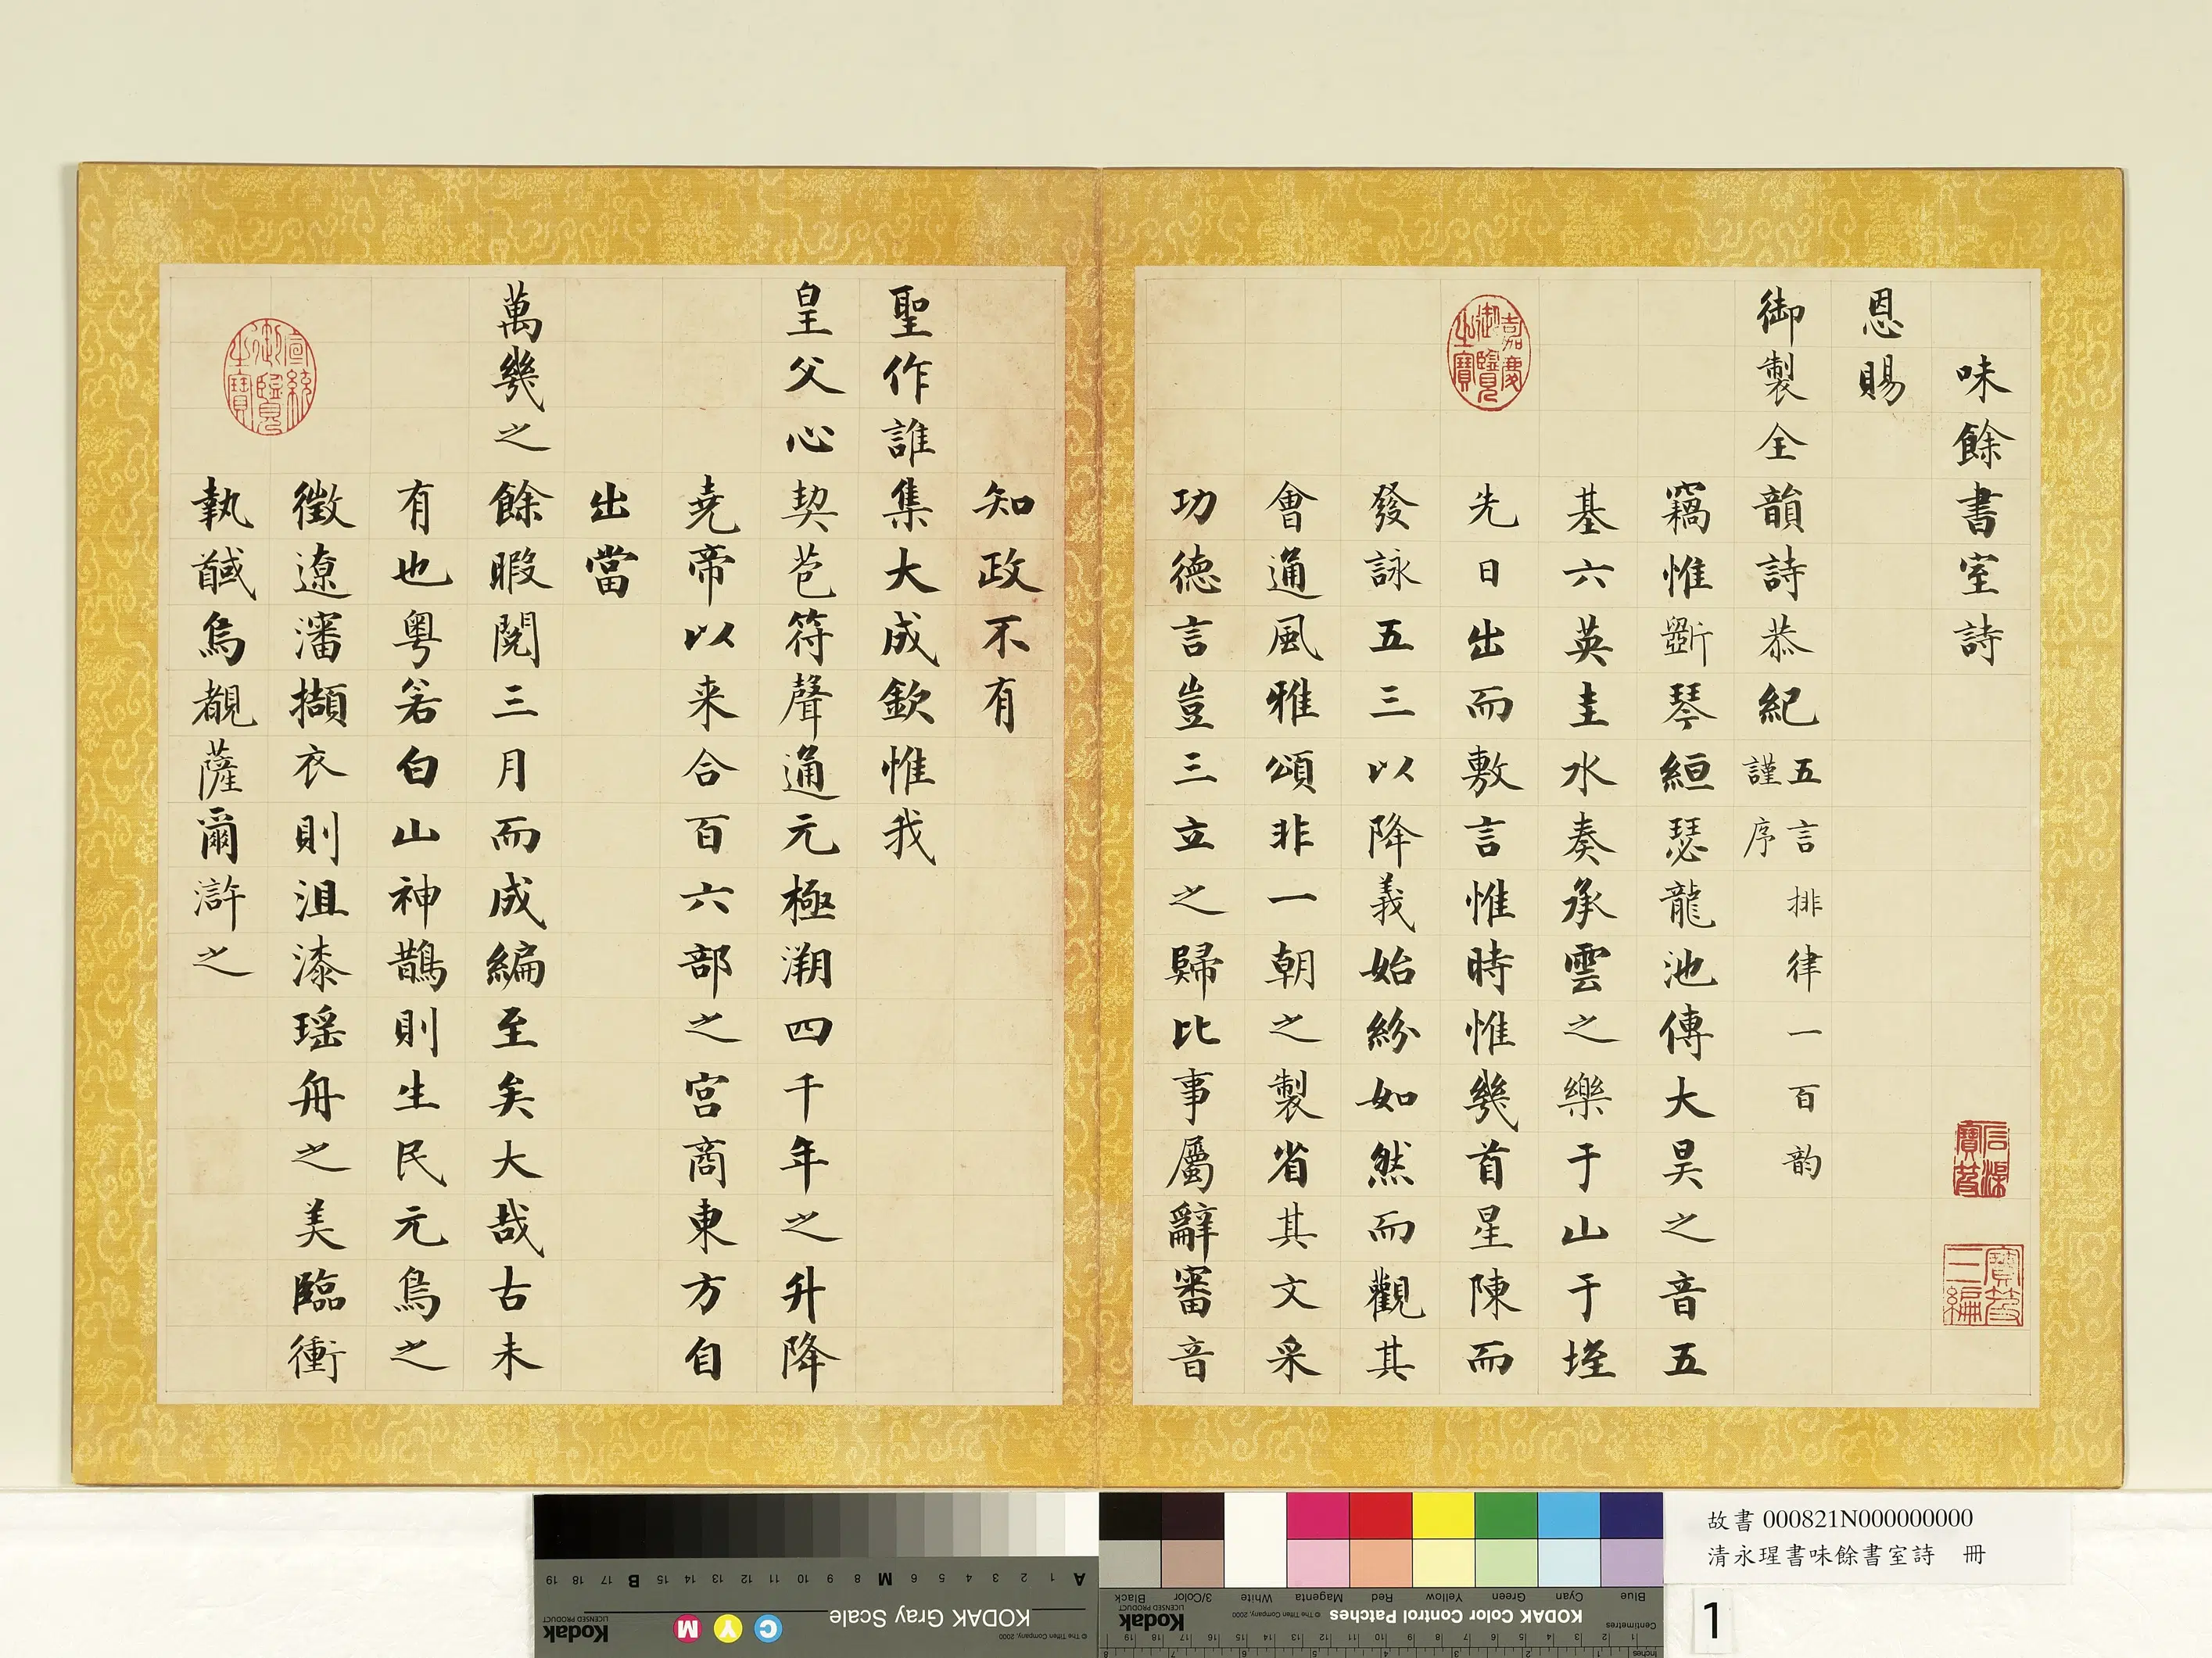 味餘書室詩
恩賜
御製全韻詩恭紀五言排律一百韵
謹序
竊惟斲琴絙瑟龍池傳大昊之音五
基六英圭水奏承雲之樂于山于垤
先日出而敷言惟時惟幾首星陳而
發詠五三以降義始紛如然而觀其
會通風雅頌非一朝之製省其文采
功德言豈三立之歸比事屬辭審音
知政不有
聖作誰集大成欽惟我
皇父心契苞符聲通元極溯四千年之升降
堯帝以来合百六部之宮商東方自
出當
萬幾之餘暇閱三月而成編至矣大哉古未
有也粵若白山神鵲則生民元鳥之
徵遼瀋擷衣則沮漆瑤舟之美臨衝
執馘焉覩薩爾滸之
嘉慶御覽之寶
宣統御覽之寶
石渠寶笈
寶笈三編
故書 000821N000000000
清永瑆書味餘書室詩 冊
1
KODAK Gray Scale
© The Tiffen Company, 2000
Kodak
LICENSED PRODUCT
C Y M
A 1 2 3 4 5 6 M 8 9 10 11 12 13 14 15 B 17 18 19
KODAK Color Control Patches
© The Tiffen Company, 2000
Kodak
LICENSED PRODUCT
Blue Cyan Green Yellow Red Magenta White 3/Color Black
Centimetres
Inches